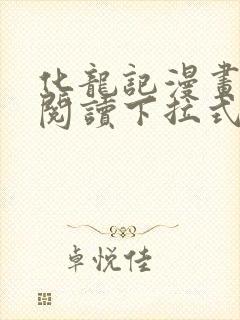 化龍記漫畫
閱讀下拉式
卓悅佳